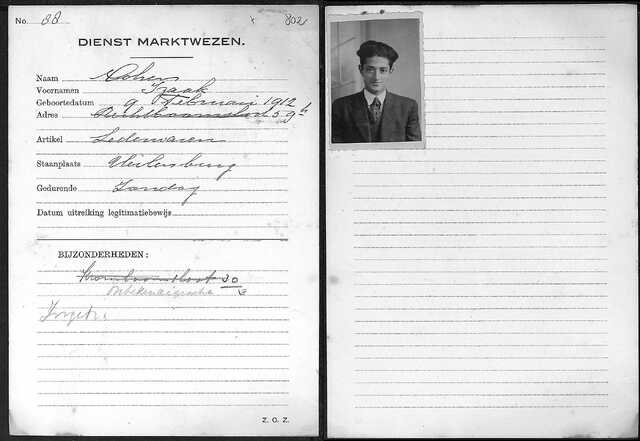 No. 88 802
DIENST MARKTWEZEN.
Naam Cohen
Voornamen Izaak
Geboortedatum 9 Februari 1912
Adres 59 h
Artikel Lederwaren
Staanplaats Uilenburg
Gedurende Zondag
Datum uitreiking legitimatiebewijs
BIJZONDERHEDEN:
Kromboomsloot 30
Z. O. Z.